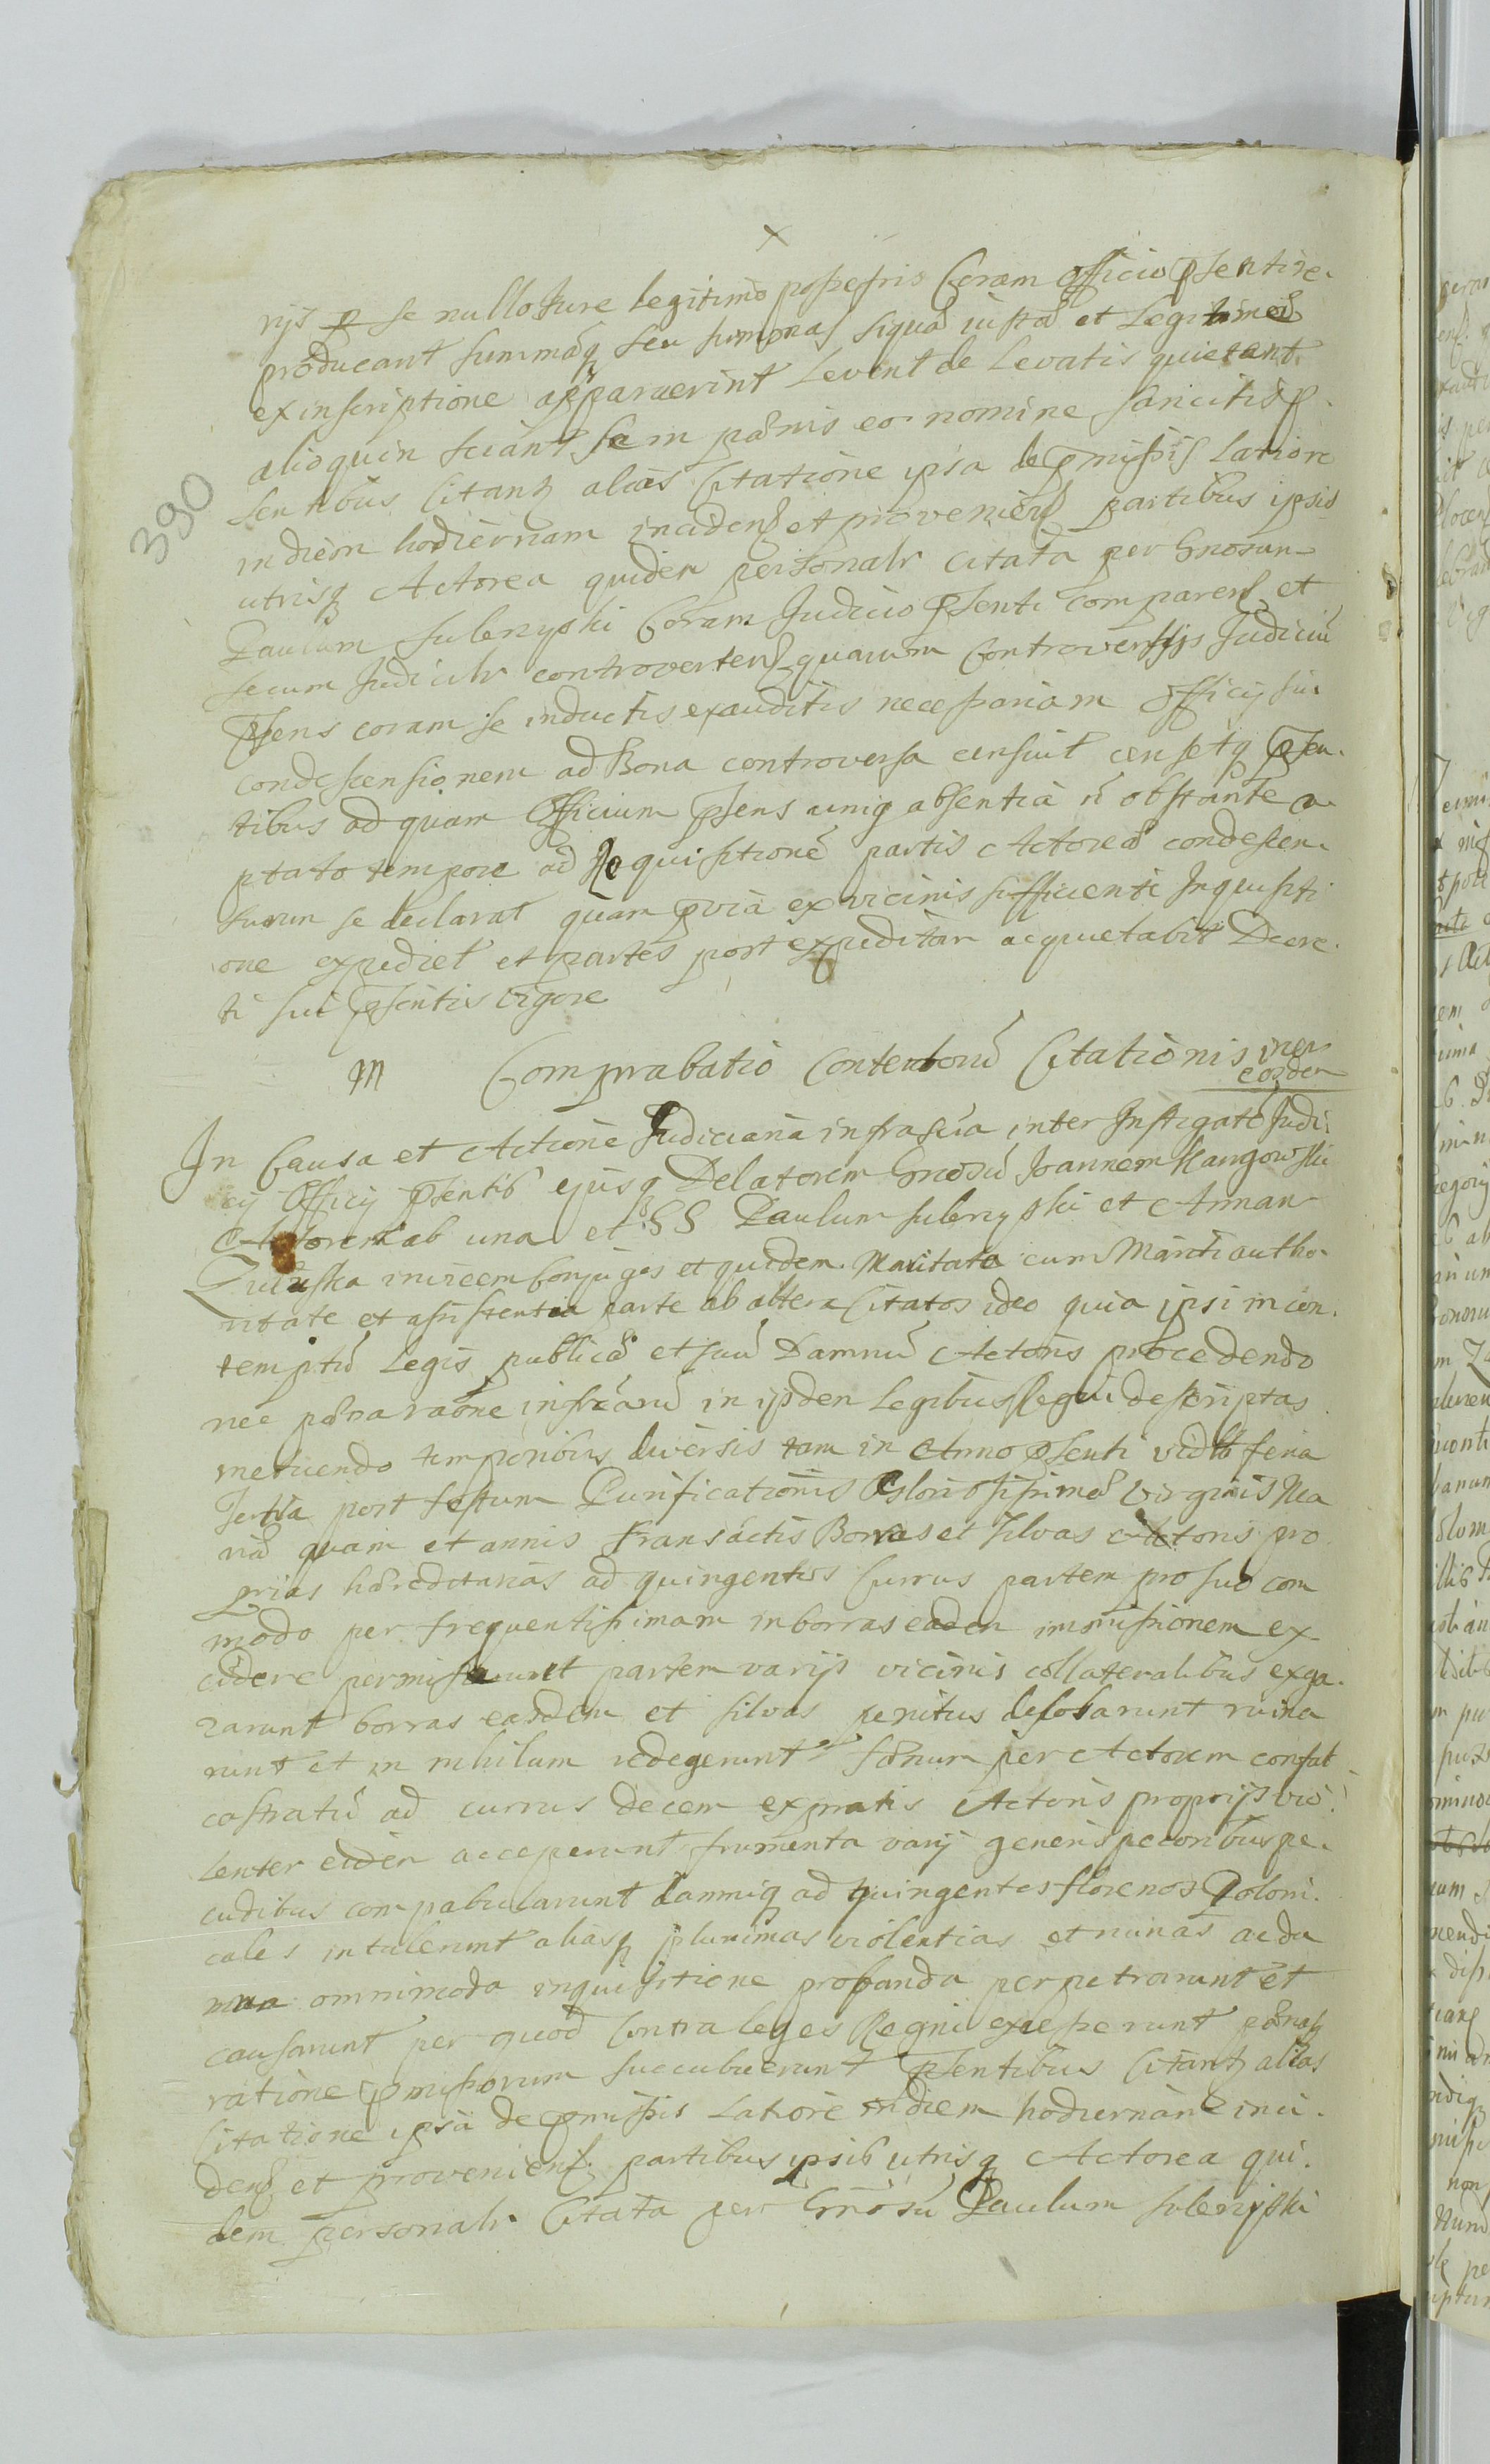 390
rijs p se nullo Jure legitimo possessis Coram Officio pñtire
producant summasq seu summas siqua iusta et Legitima
ex inscriptione apparuerint Levent de Levatis quietent
alioquin sciant se in pænis eo nomine sancitis p
sentibus Citantq alias Citatione ipsa de præmissis Latiore
in diem hodiernam inciden et provenien partibus ipsis
utrisq Actorea quidem personalr citata per Gnosum
Paulum Coram Judicio psenti comparen et
secum Judiclr controverten quarum Controversijs Judiciũ
psens coram se inductis exauditis necessariam Officij sui
condescensionem ad Bona controversa censuit censetq psen
tibus ad quam Officium psens uniq absentia ñ obstante a
ptato tempore ad Requisitionẽ partis Actoreæ condescen
surum se declarat quam pvia ex vicinis sufficienti Inquisiti
one expediet et partes post expeditam acquietabit Decre
ti sui psentis vigore
m Comprobatio Contentorũ Citationis inter
eosdem
In Causa et Actione Judiciaria infrascta inter Instigatõ Judi
cij Officij psentis ejusq Delatorem Gnosũ Joannem
Actorem ab una et GG Paulum et Annam
invicem Conjuges et quidem Maritata cum Mariti autho
ritate et assistentia parte ab altera Citatos ideo quia ipsi in con
temptũ Legis publicæ et suũ Damnũ Actoris procedendo
nec pæna raõne infrarũ in ijsdem Legibus Regni descriptas
metuendo temporibus diversis tam in Anno psenti vidlt feria
Tertia post festum Purificationis Gloriosissimæ Virginis Ma
riæ quam et annis Transactis Borras et silvas Actoris pro
prias hæreditarias ad quingentos Currus partem pro suo com
modo per frequentissimam in borras easdem immissionem ex
cidere permiserunt partem varijs vicinis collateralibus
borras easdem et silvas penitus desolarunt ruina
runt et in nihilum redegerunt fænum per Actorem confal
castratũ ad currus decem ex pratis Actoris proprijs vio
lenter eidem acceperunt frumenta varij generis pecoribus pe
cudibus compabularunt damniq ad quingentos florenos Poloni
cales intulerunt aliasq plurimas violentias et ruinas ac da
mna omnimoda inquisitione probanda perpetrarunt et
causarunt per quod Contra leges Regni excesserunt pænasq
ratione pmissorum succubuerunt psentibus Citantq alias
Citatione ipsa de pmissis Latiore in diem hodiernam inci
den et provenien partibus ipsis utrisq Actorea qui
dem personalr Citata per Gnosũ Paulum